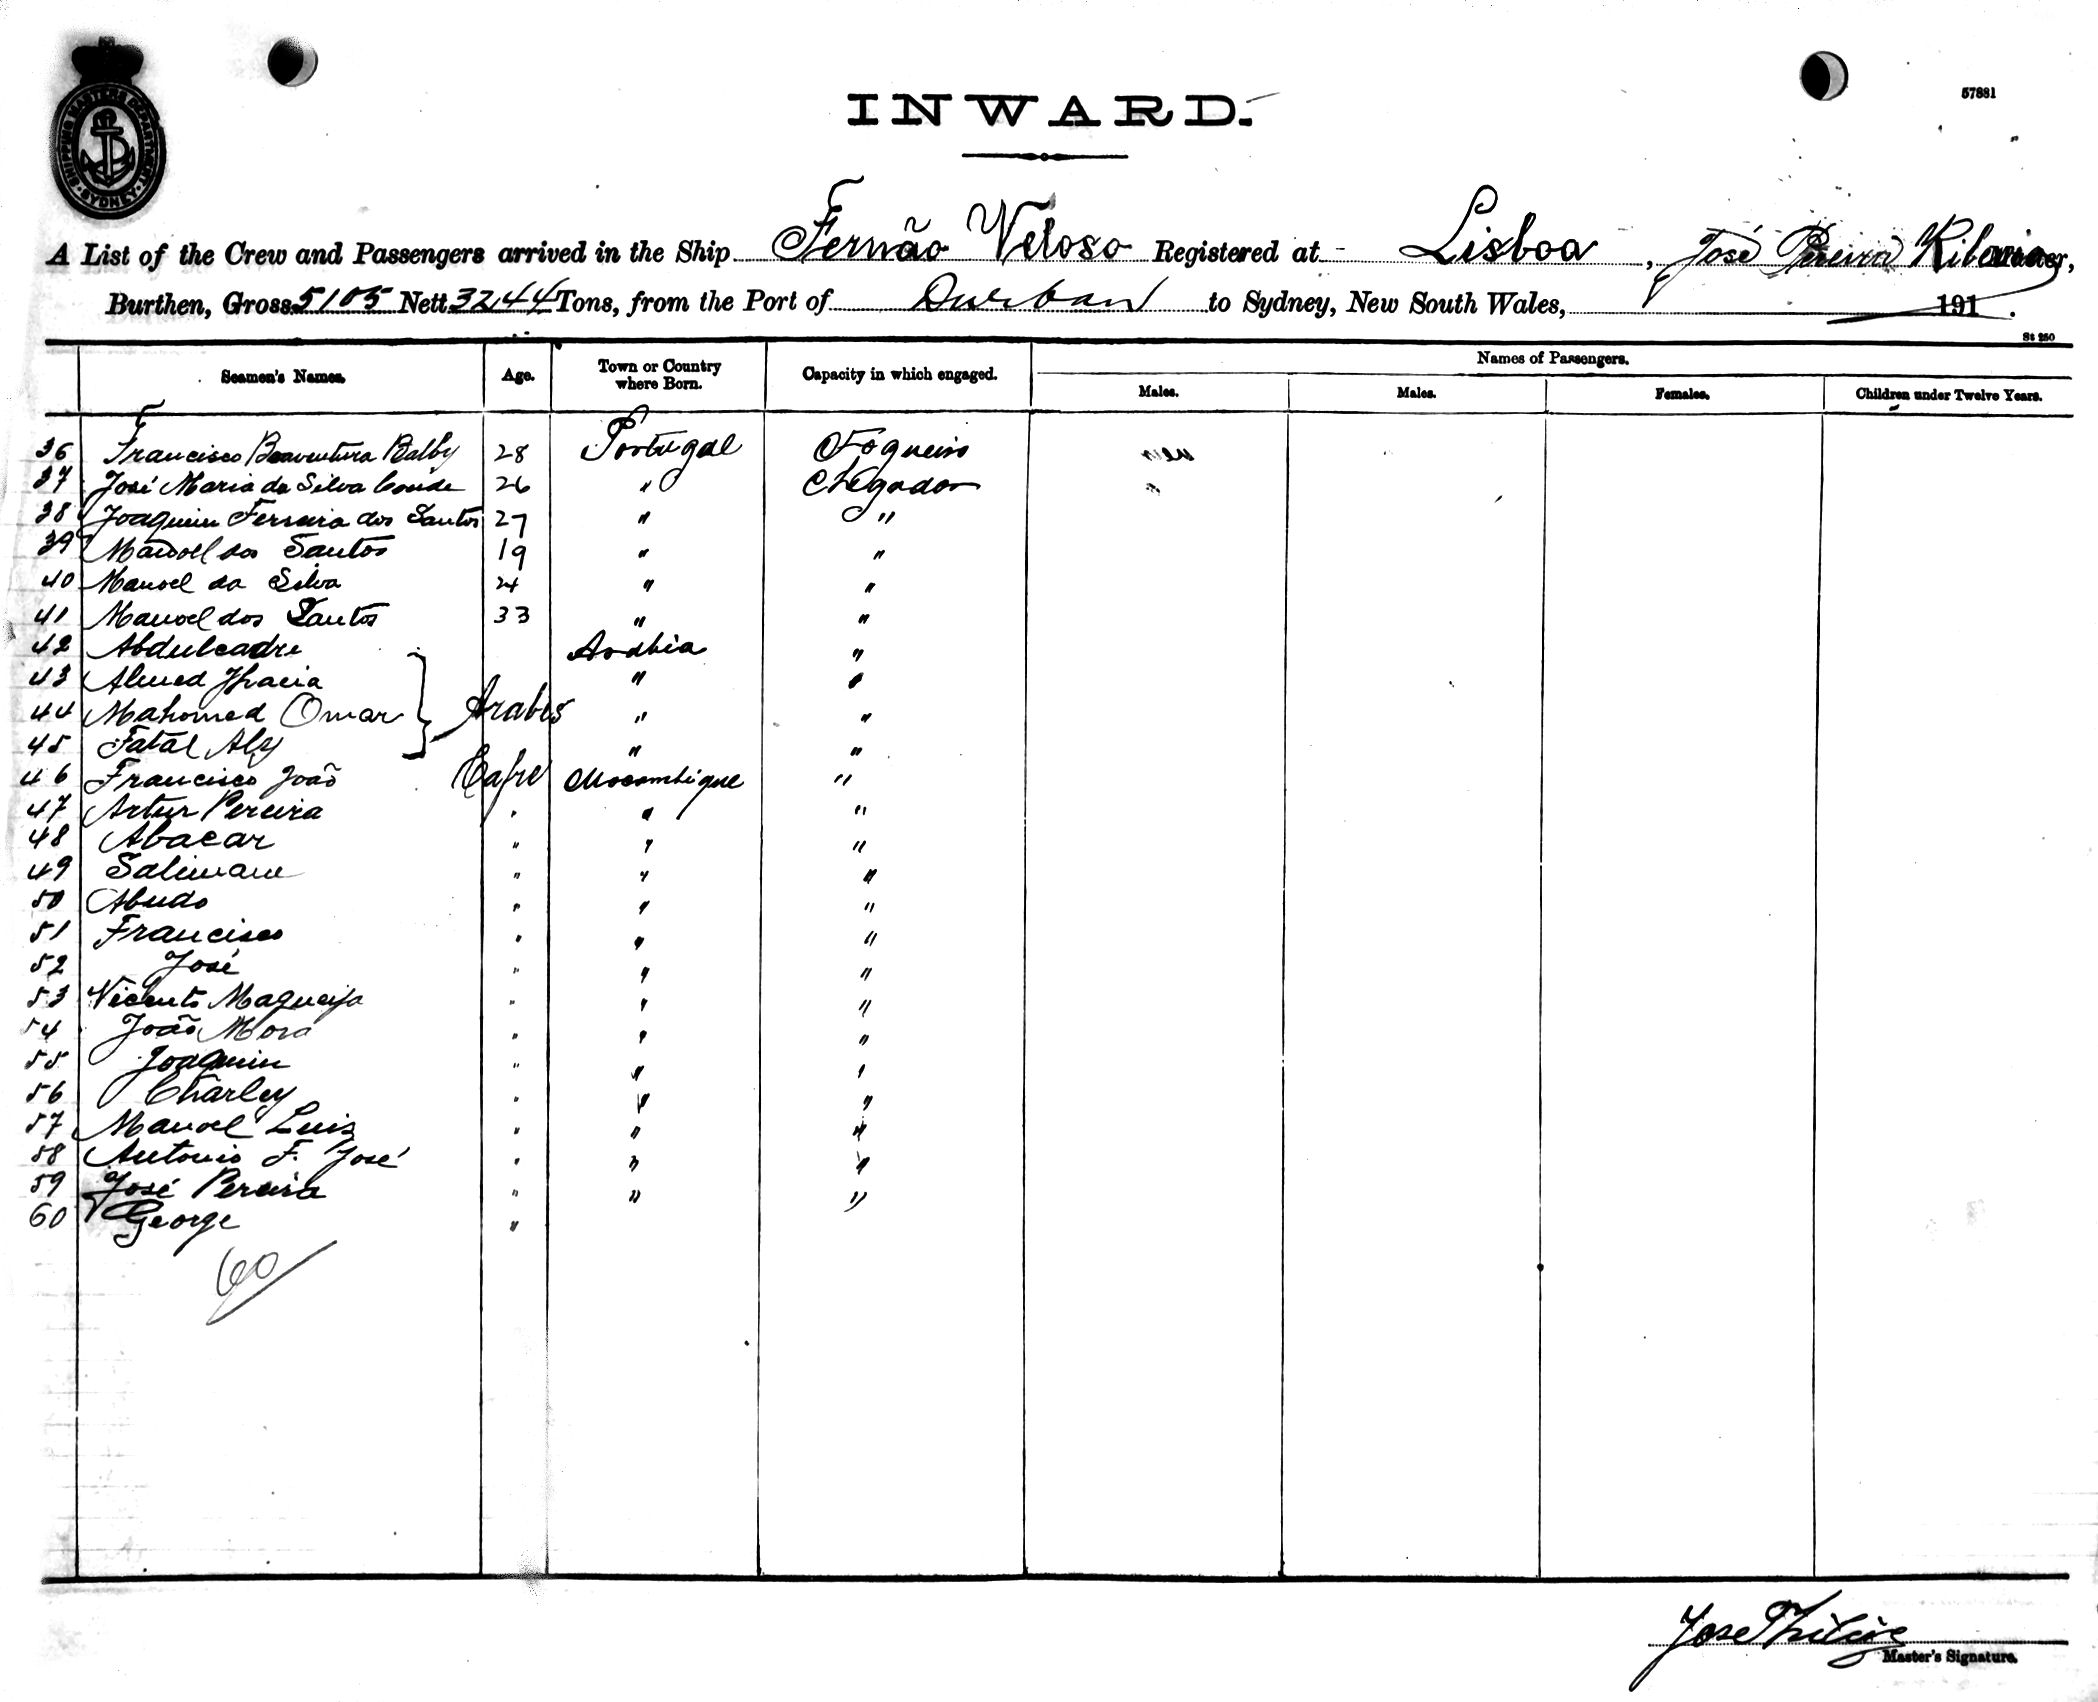 SHIPPING MASTERS DEPARTMENT SYDNEY
57881
INWARD.
A List of the Crew and Passengers arrived in the Ship Fernão Veloso Registered at Lisboa, José Pereira Ribeiro Master,
Burthen, Gross 5105 Nett 3244 Tons, from the Port of Durban to Sydney, New South Wales, 191 .
St 250
Seamen's Names. Age. Town or Country where Born. Capacity in which engaged. Names of Passengers.
Males. Males. Females. Children under Twelve Years.
36 Francisco Boaventura Balby 28 Portugal Fogueiro
37 José Maria da Silva Coude 26 " Chegador
38 Joaquim Ferreira dos Santos 27 " "
39 Manoel dos Santos 19 " "
40 Manoel da Silva 24 " "
41 Manoel dos Santos 33 " "
42 Abdulcadre Arabia "
43 Ahmed " "
44 Mahomed Omar Arabes " "
45 Fatal Aly " "
46 Francisco João Cafre Mocambique "
47 Artur Pereira " " "
48 Abacar " " "
49 Salimane " " "
50 Abudo " " "
51 Francisco " " "
52 José " " "
53 Vicente " " "
54 João Mora " " "
55 Joaquim " " "
56 Charley " " "
57 Manoel Luiz " " "
58 Antonio F. José " " "
59 José Pereira " " "
60 George "
60
Jose
Master's Signature.